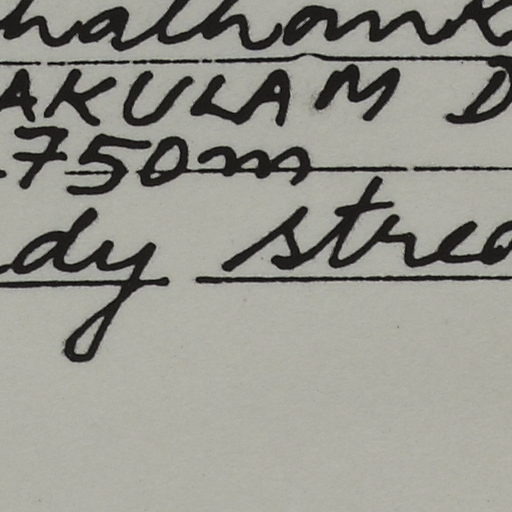 halhank
AKULAM D
750m
dy strea